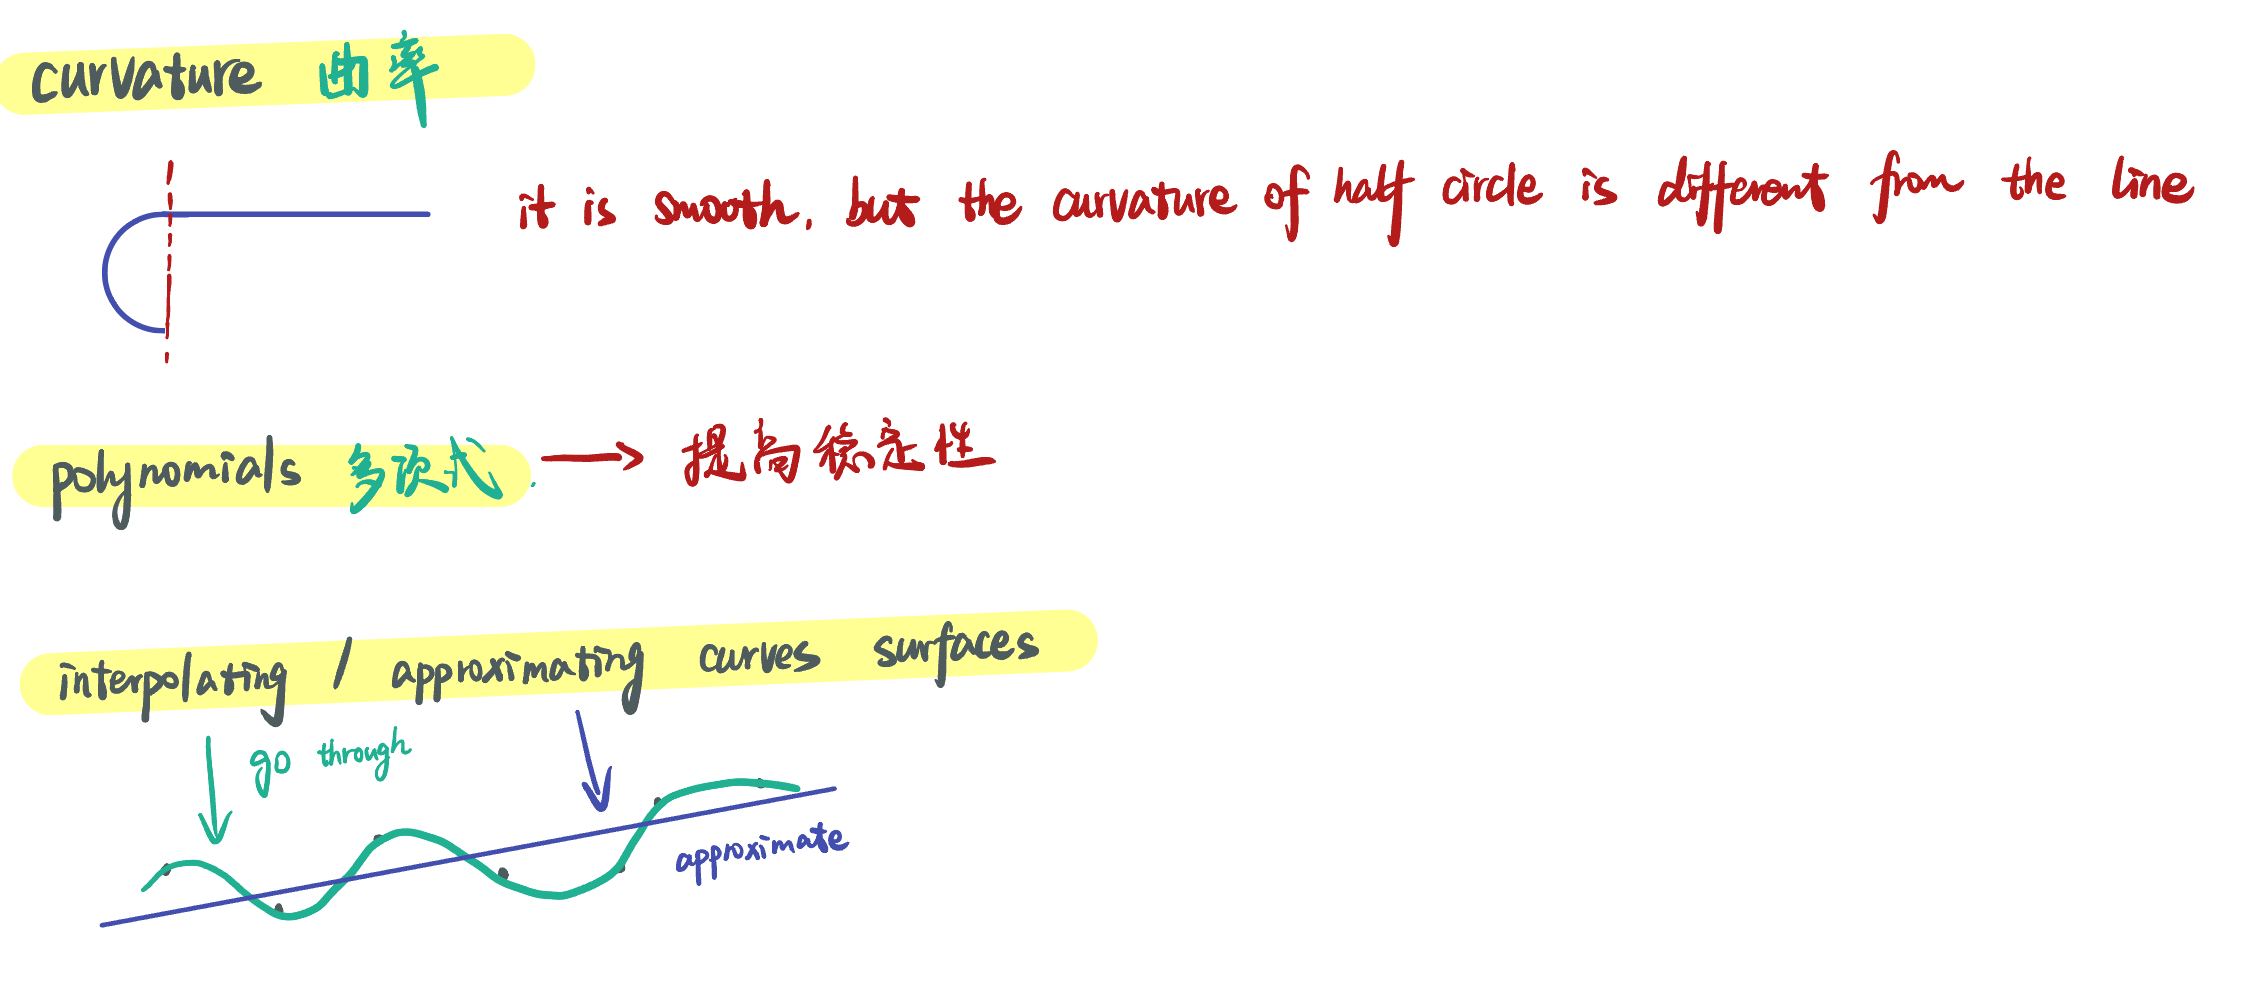 curvature 曲率
it is smooth, but the curvature of half circle is different from the line
polynomials 多项式 → 提高稳定性
interpolating / approximating curves surfaces
go through
approximate